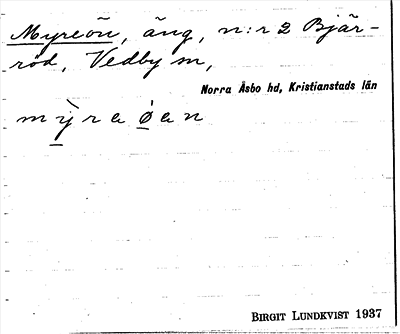 Myreön, äng, n:r 2 Bjär-
röd, Vedby sn,
Norra Åsbo hd, Kristianstads län
mỳra øan
BIRGIT LUNDKVIST 1937